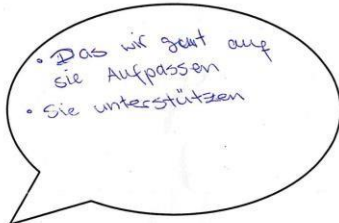 • Das wir gut auf
sie Aufpassen
• Sie unterstützen